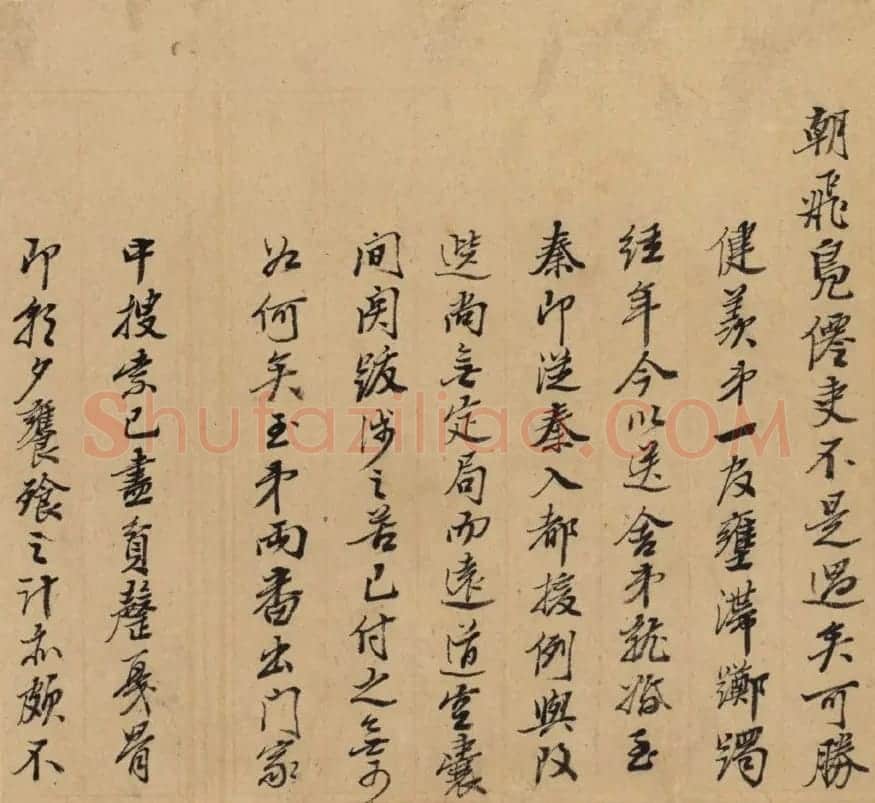 朝飛鳧僊吏不是過矣可勝
健羨弟一官壅滯躑躅
經年今以送舍弟就婚至
秦即從秦入都援例與改
選尚無定局而遠道空囊
间関跋涉之苦已付之無可
如何矣至弟兩番出門家
中搜索已盡貧罄戛骨
即朝夕饔飧之計亦頗不
Shufaziliao.COM